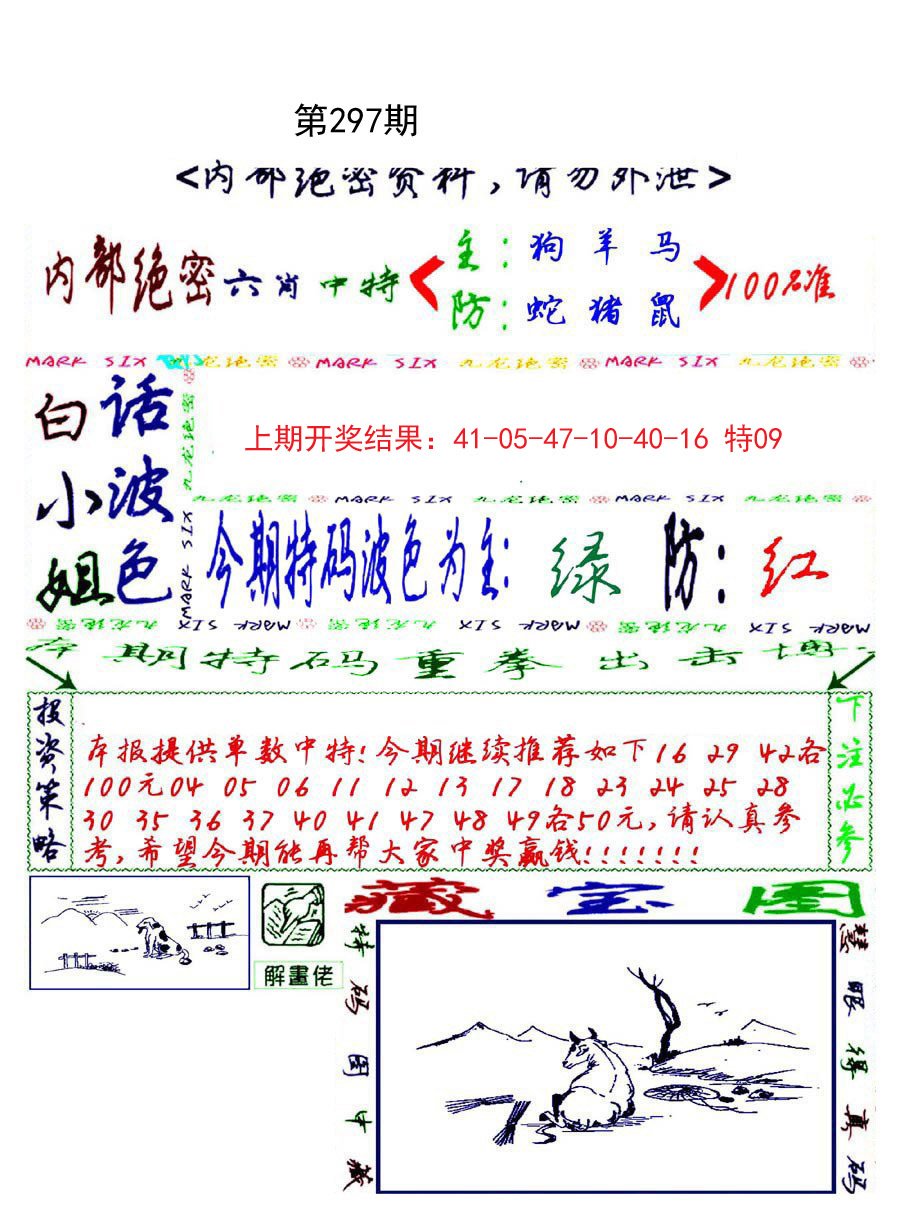 第297期
<内部绝密资料,请勿外泄>
内部绝密六肖中特
主:狗 羊 马
防:蛇 猪 鼠
100%准
MARK SIX 九龙绝密 MARK SIX 九龙绝密 MARK SIX 九龙绝密
九龙绝密
MARK SIX
白小姐
话波色
上期开奖结果：41-05-47-10-40-16 特09
九龙绝密 MARK SIX 九龙绝密 MARK SIX 九龙绝密
今期特码波色为主: 绿 防: 红
九龙绝密 MARK SIX 九龙绝密 MARK SIX 九龙绝密 MARK SIX
本期特码重拳出击博
投资策略
本报提供单数中特!今期继续推荐如下16 29 42各
100元04 05 06 11 12 13 17 18 23 24 25 28
30 35 36 37 40 41 47 48 49各50元,请认真参
考,希望今期能再帮大家中奖赢钱!!!!!!!
下注必参
解畫佬
藏宝图
特码图中藏
慧眼得真码